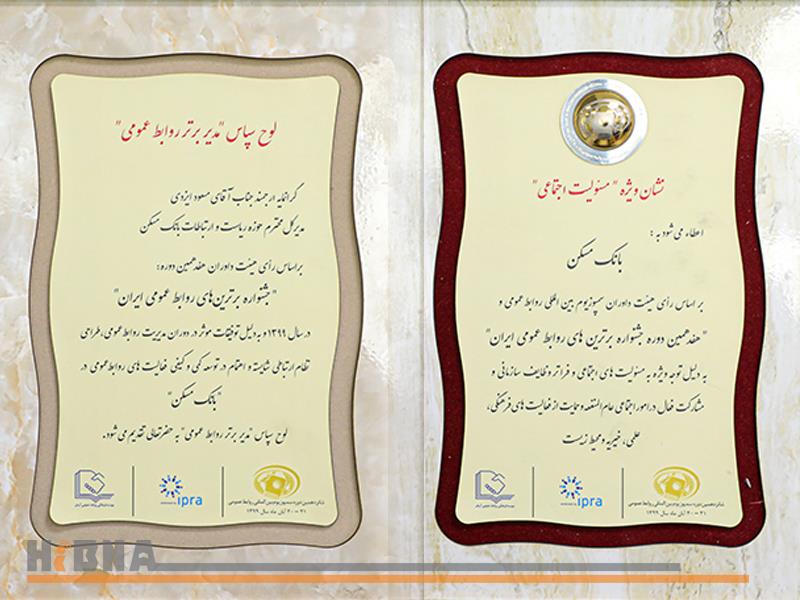 نشان ویژه " مسئولیت اجتماعی "
اعطاء می شود به :
بانک مسکن
بر اساس رأی هیئت داوران سمپوزیوم بین المللی روابط عمومی و
" هفدهمین دوره جشنواره برترین های روابط عمومی ایران "
به دلیل توجه ویژه به مسئولیت های اجتماعی و فراتر وظایف سازمانی و
مشارکت فعال در امور اجتماعی عام المنفعه و حمایت از فعالیت های فرهنگی،
علمی، خیریه و محیط زیست
شانزدهمین دوره سمپوزیوم بین المللی روابط عمومی
۲۱ - ۲۰ آبان ماه سال ۱۳۹۹
ipra
لوح سپاس "مدیر برتر روابط عمومی"
گرانمایه ارجمند جناب آقای مسعود ایزدی
مدیرکل محترم حوزه ریاست و ارتباطات بانک مسکن
بر اساس رأی هیئت داوران هفدهمین دوره:
"جشنواره برترین های روابط عمومی ایران"
در سال ۱۳۹۹ و به دلیل توفیقات موثر در دوران مدیریت روابط عمومی، طراحی
نظام ارتباطی شایسته و اهتمام در توسعه کمی و کیفی فعالیت های روابط عمومی در
"بانک مسکن"
لوح سپاس "مدیر برتر روابط عمومی" به حضرتعالی تقدیم می شود.
شانزدهمین دوره سمپوزیوم بین المللی روابط عمومی
۲۱ - ۲۰ آبان ماه سال ۱۳۹۹
ipra
HIBNA